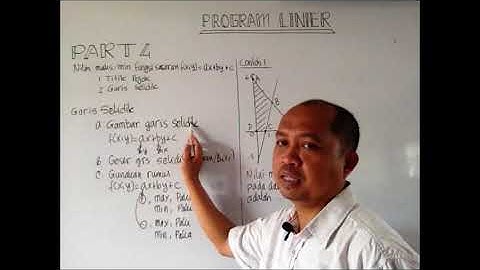 PROGRAM LINIER
PART 4
Nilai maks/min fungsi sasaran f(x,y)=ax+by+c
1 Titik Pojok
2 Garis Selidik
Garis Selidik
a Gambar garis selidik
f(x,y)=ax+by+c
b Geser grs selidik
c Gunakan rumus
f(x,y)=ax+by+c
max,
min,
max,
min,
Contoh 1
A
B
C
D
Nilai
pada
adalah